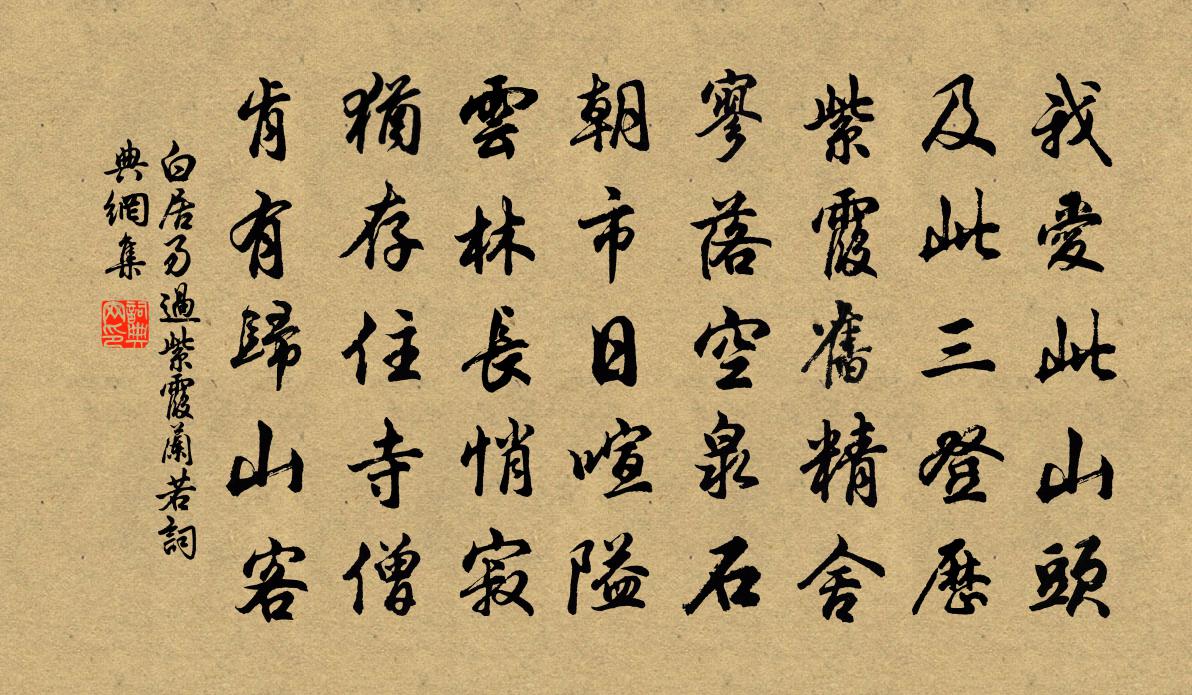 我愛此山頭
及此三登歷
紫霞舊精舍
寥落空泉石
朝市日喧隘
雲林長悄寂
猶存住寺僧
肯有歸山客
白居易過紫霞蘭若詞
典網集
詞典
网印